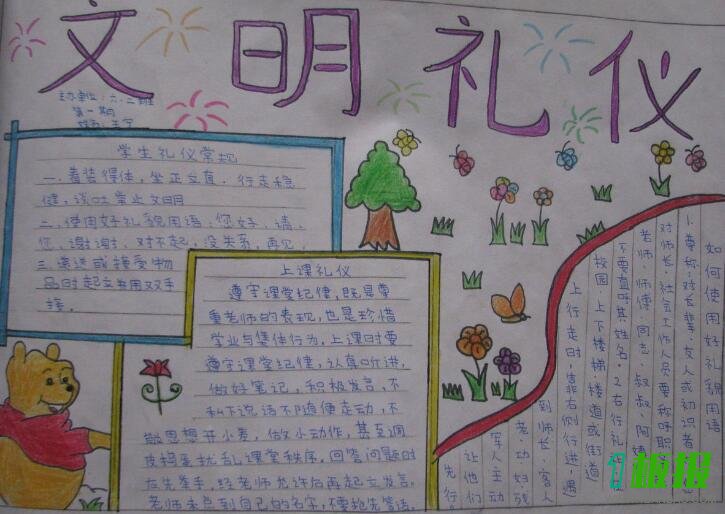 文明礼仪
主办单位:六.二班
第一期
学生礼仪常规
一.着装得体,坐正立直.行走稳
健,谈吐举止文明
二.使用好礼貌用语,您好、请、
您、谢谢、对不起,没关系,再见
三.递送或接受物
品时起立并用双手
接。
上课礼仪
遵守课堂纪律,既是尊
重老师的表现,也是珍惜
学业与集体行为,上课时要
遵守课堂纪律,认真听讲,
做好笔记,积极发言,不
私下说话不随便走动,不
敢思想开小差,做小动作,甚至调
皮捣蛋扰乱课堂秩序,回答问题时
应先举手,经老师允许后再起立发言。
老师未点到自己的名字,不要抢先答话。
如何使用好礼貌用语
1.尊称.对长辈.友人或初识者
对师长.社会工作人员要称呼职
老师.师傅.同志.叔叔.阿姨
不要直呼其姓名。2右行礼
校园.上下楼梯楼道或街道
上行走时,靠右侧行进,遇
到师长.客人
老.幼.妇.残
军人主动
让他们
先行。
板报